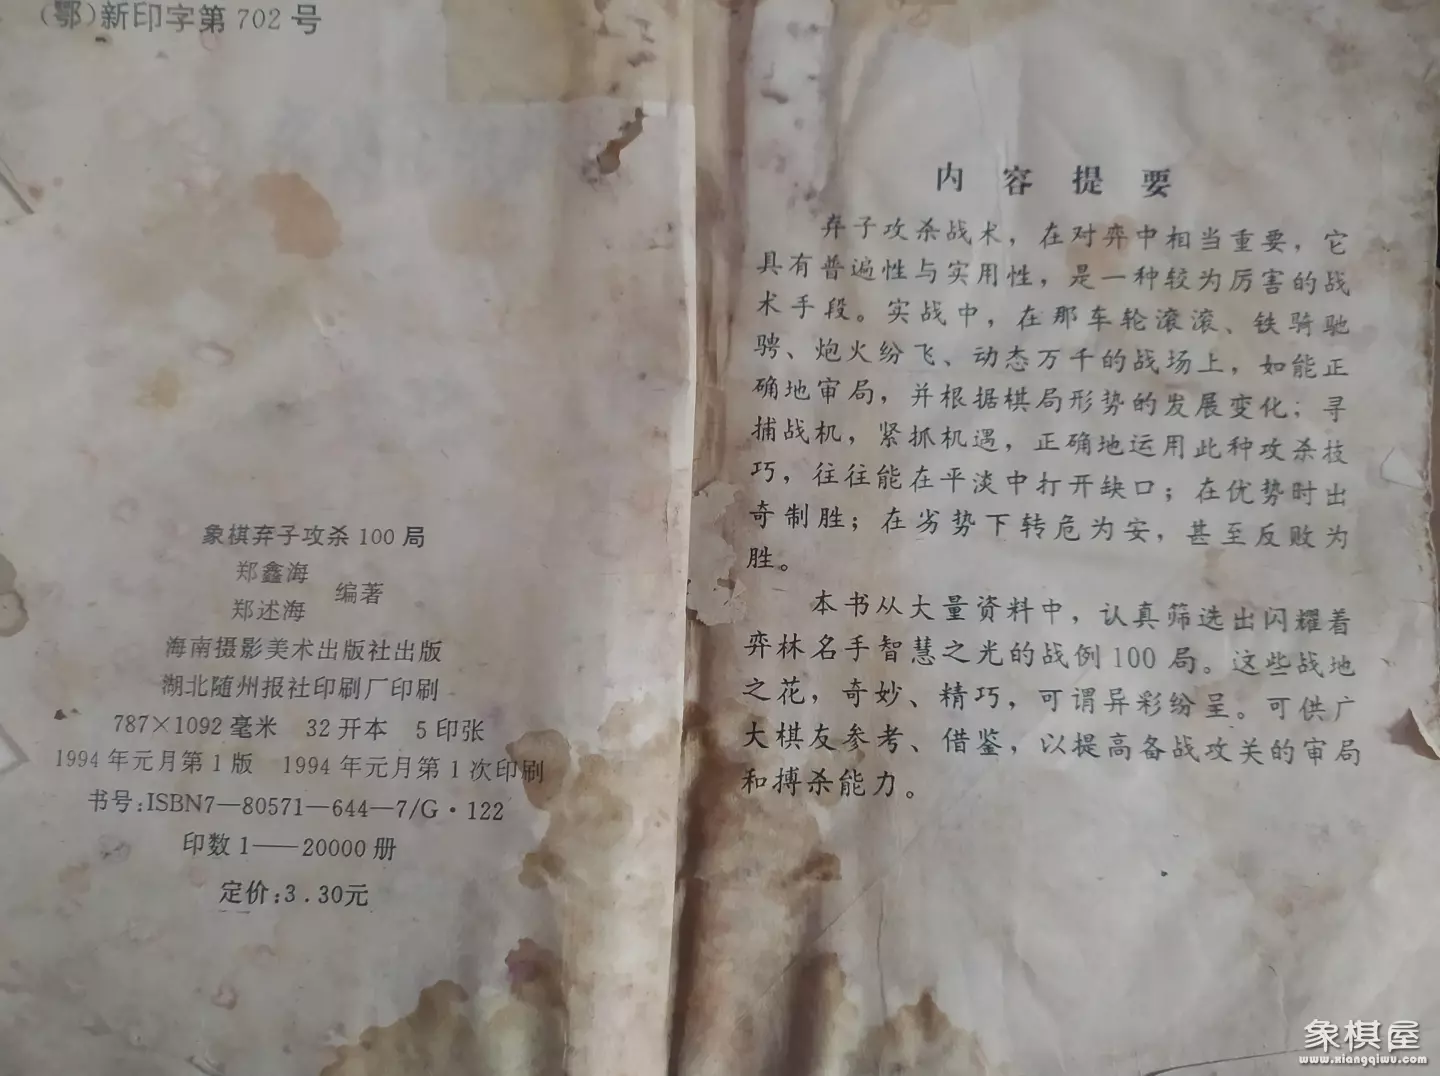 (鄂)新印字第702号
象棋弃子攻杀100局
郑鑫海
郑述海
编著
海南摄影美术出版社出版
湖北随州报社印刷厂印刷
787×1092毫米 32开本 5印张
1994年元月第1版 1994年元月第1次印刷
书号:ISBN7—80571—644—7/G·122
印数1——20000册
定价:3.30元
内容提要
弃子攻杀战术，在对弈中相当重要，它
具有普遍性与实用性，是一种较为厉害的战
术手段。实战中，在那车轮滚滚、铁骑驰
骋、炮火纷飞、动态万千的战场上，如能正
确地审局，并根据棋局形势的发展变化；寻
捕战机，紧抓机遇，正确地运用此种攻杀技
巧，往往能在平淡中打开缺口；在优势时出
奇制胜；在劣势下转危为安，甚至反败为
胜。
本书从大量资料中，认真筛选出闪耀着
弈林名手智慧之光的战例100局。这些战地
之花，奇妙、精巧，可谓异彩纷呈。可供广
大棋友参考、借鉴，以提高备战攻关的审局
和搏杀能力。
象棋屋
www.xiangqiwu.com